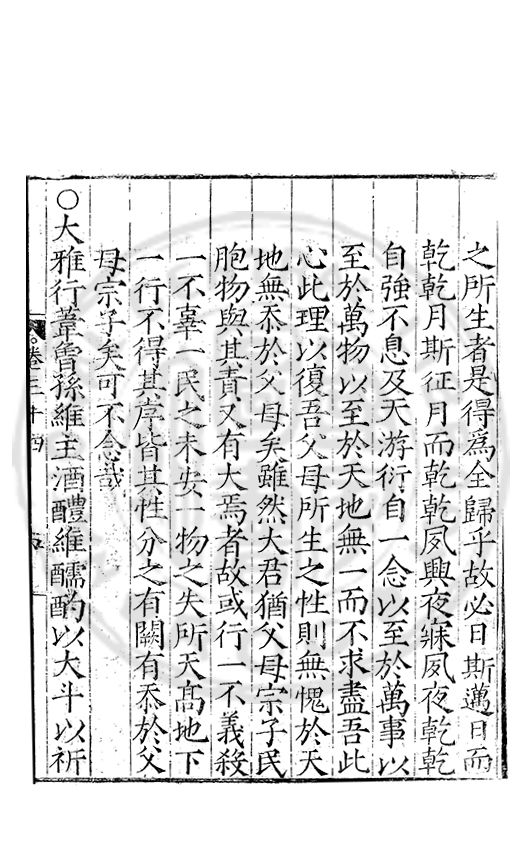 之所生者是得為全歸乎故必日斯邁日而
乾乾月斯征月而乾乾夙興夜寐夙夜乾乾
自強不息及天游衍自一念以至於萬事以
至於萬物以至於天地無一而不求盡吾此
心此理以復吾父母所生之性則無愧於天
地無忝於父母矣雖然大君猶父母宗子民
胞物與其責又有大焉者故或行一不義殺
一不辜一民之未安一物之失所天高地下
一行不得其序皆其性分之有闕有忝於父
母宗子矣可不念哉
○大雅行葦曾孫維主酒醴維醹酌以大斗以祈
卷三十四